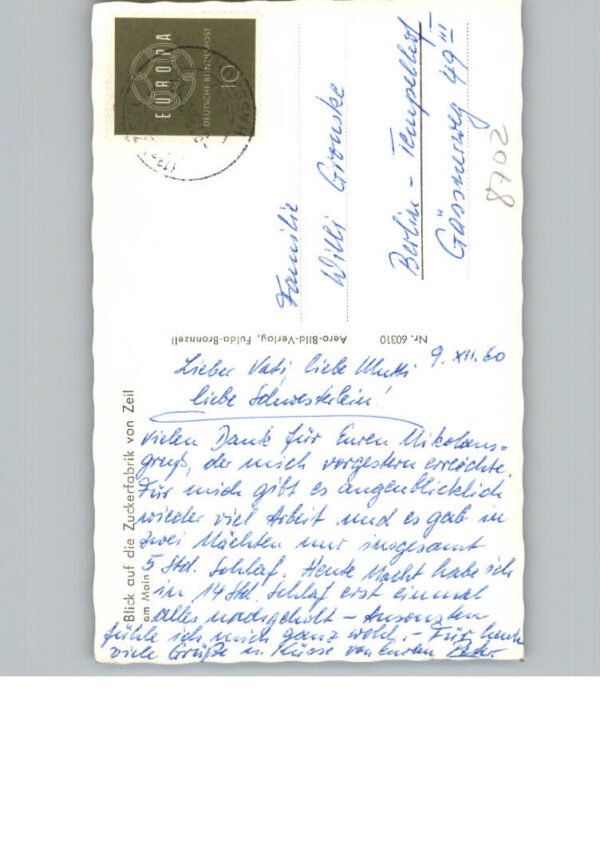 EUROPA
DEUTSCHE BUNDESPOST
10
Familie
Willi
Berlin - Tempelhof
Gässnerweg 49 III
8702
Nr. 60310
Aero-Bild-Verlag, Fulda-Bronnzell
Blick auf die Zuckerfabrik von Zeil
am Main
9. XII. 60
Lieber Vati, liebe Mutti
liebe Schwesterlein!
Vielen Dank für Euren Nikolaus=
gruß, der mich vorgestern erreichte.
Für mich gibt es augenblicklich
wieder viel Arbeit und es gab in
zwei Nächten nur insgesamt
5 Std. Schlaf. Heute Nacht habe ich
in 14 Std. Schlaf erst einmal
alles nachgeholt - Ansonsten
fühle ich mich ganz wohl. - Für heute
viele Grüße u. Küsse von Eurem